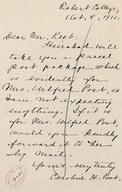 Robert College,
Oct. 8, 1910.
Dear Mr. Peet:
take you a parcel
post package, which
is evidently for
Mrs. Wilfred Post, as
I am not expecting
anything. If it is
for Mrs. Wilfred Post,
would you kindly
forward it to her
by mail.
Yours very truly
Caroline H. Post.